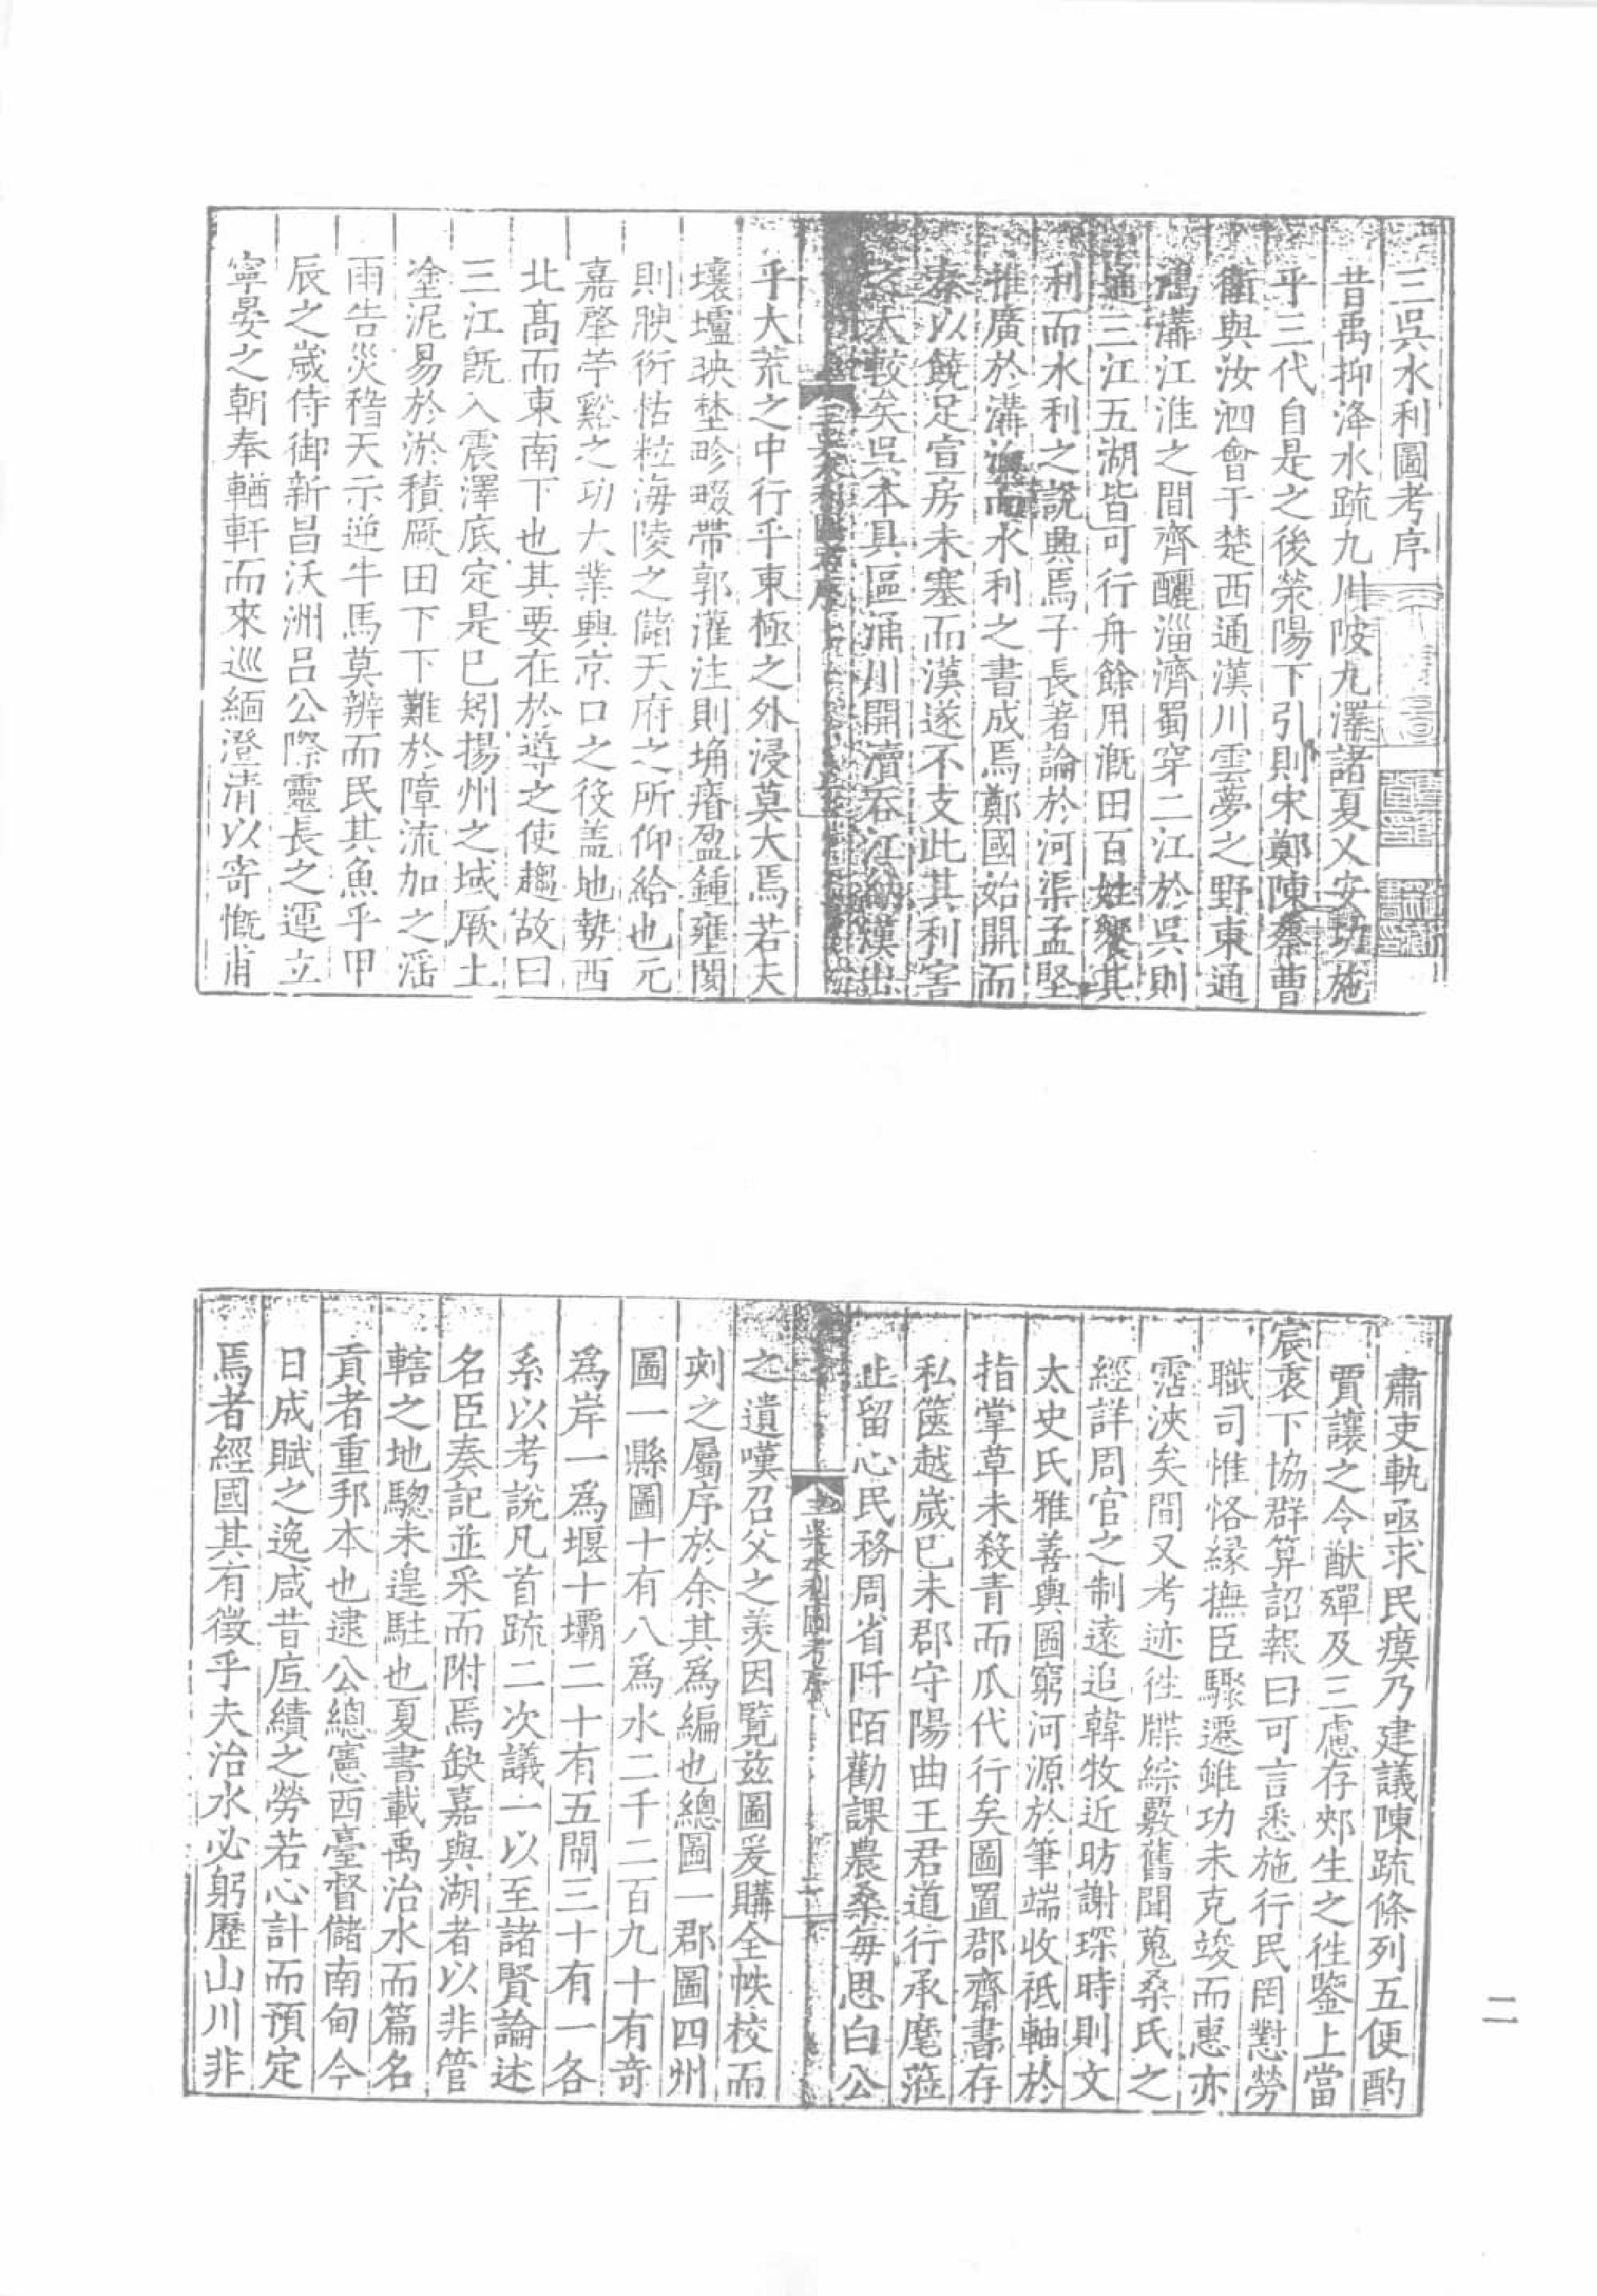 三吳水利圖考序
昔禹抑洚水疏九川陂九澤諸夏乂安功施
乎三代自是之後滎陽下引則宋鄭陳蔡曹
衛與汝泗會于楚西通漢川雲夢之野東通
鴻溝江淮之間齊釃淄濟蜀穿二江於吳則
通三江五湖皆可行舟餘用漑田百姓饗其
利而水利之說興焉子長著論於河渠孟堅
推廣於溝洫而水利之書成焉鄭國始開而
秦以饒足宣房未塞而漢遂不支此其利害
之大較矣吳本具區涌川開瀆吞江納漢出
三吳水利圖考序
乎大荒之中行乎東極之外浸莫大焉若夫
壤壚坱埜畛畷帶郭灌注則埆瘠盈鍾壅閼
則腴衍枯粒海陵之儲天府之所仰給也元
嘉肇苧谿之功大業興京口之役盖地勢西
北髙而東南下也其要在於導之使趨故曰
三江旣入震澤底定是已矧揚州之域厥土
塗泥易於淤積厥田下下難於障流加之滛
雨告災稽天示逆牛馬莫辨而民其魚乎甲
辰之歲侍御新昌沃洲吕公際靈長之運立
寧晏之朝奉輶軒而來巡緬澄清以寄慨甫
肅吏軌亟求民瘼乃建議陳疏條列五便酌
賈讓之令猷殫及三慮存郟生之徃鑒上當
宸衷下協群算詔報曰可言悉施行民罔懟勞
職司惟恪緣撫臣驟遷雖功未克竣而惠亦
霑浹矣間又考迹徃牒綜覈舊聞蒐桑氏之
經詳周官之制遠追韓牧近昉謝琛時則文
太史氏雅善輿圖窮河源於筆端收祗軸於
指掌草未殺青而瓜代行矣圖置郡齋書存
私篋越歲已未郡守陽曲王君道行承麾蒞
止留心民務周省阡陌勸課農桑每思白公
三吳水利圖考序
二
之遺嘆召父之羡因覽茲圖爰購全帙校而
刻之屬序於余其為編也總圖一郡圖四州
圖一縣圖十有八為水二千二百九十有竒
為岸一為堰十壩二十有五閘三十有一各
系以考說凡首疏二次議一以至諸賢論述
名臣奏記並采而附焉缺嘉與湖者以非管
轄之地騘未遑駐也夏書載禹治水而篇名
貢者重邦本也逮公總憲西臺督儲南甸今
日成賦之逸咸昔庀績之勞若心計而預定
焉者經國其有徵乎夫治水必躬歷山川非
二